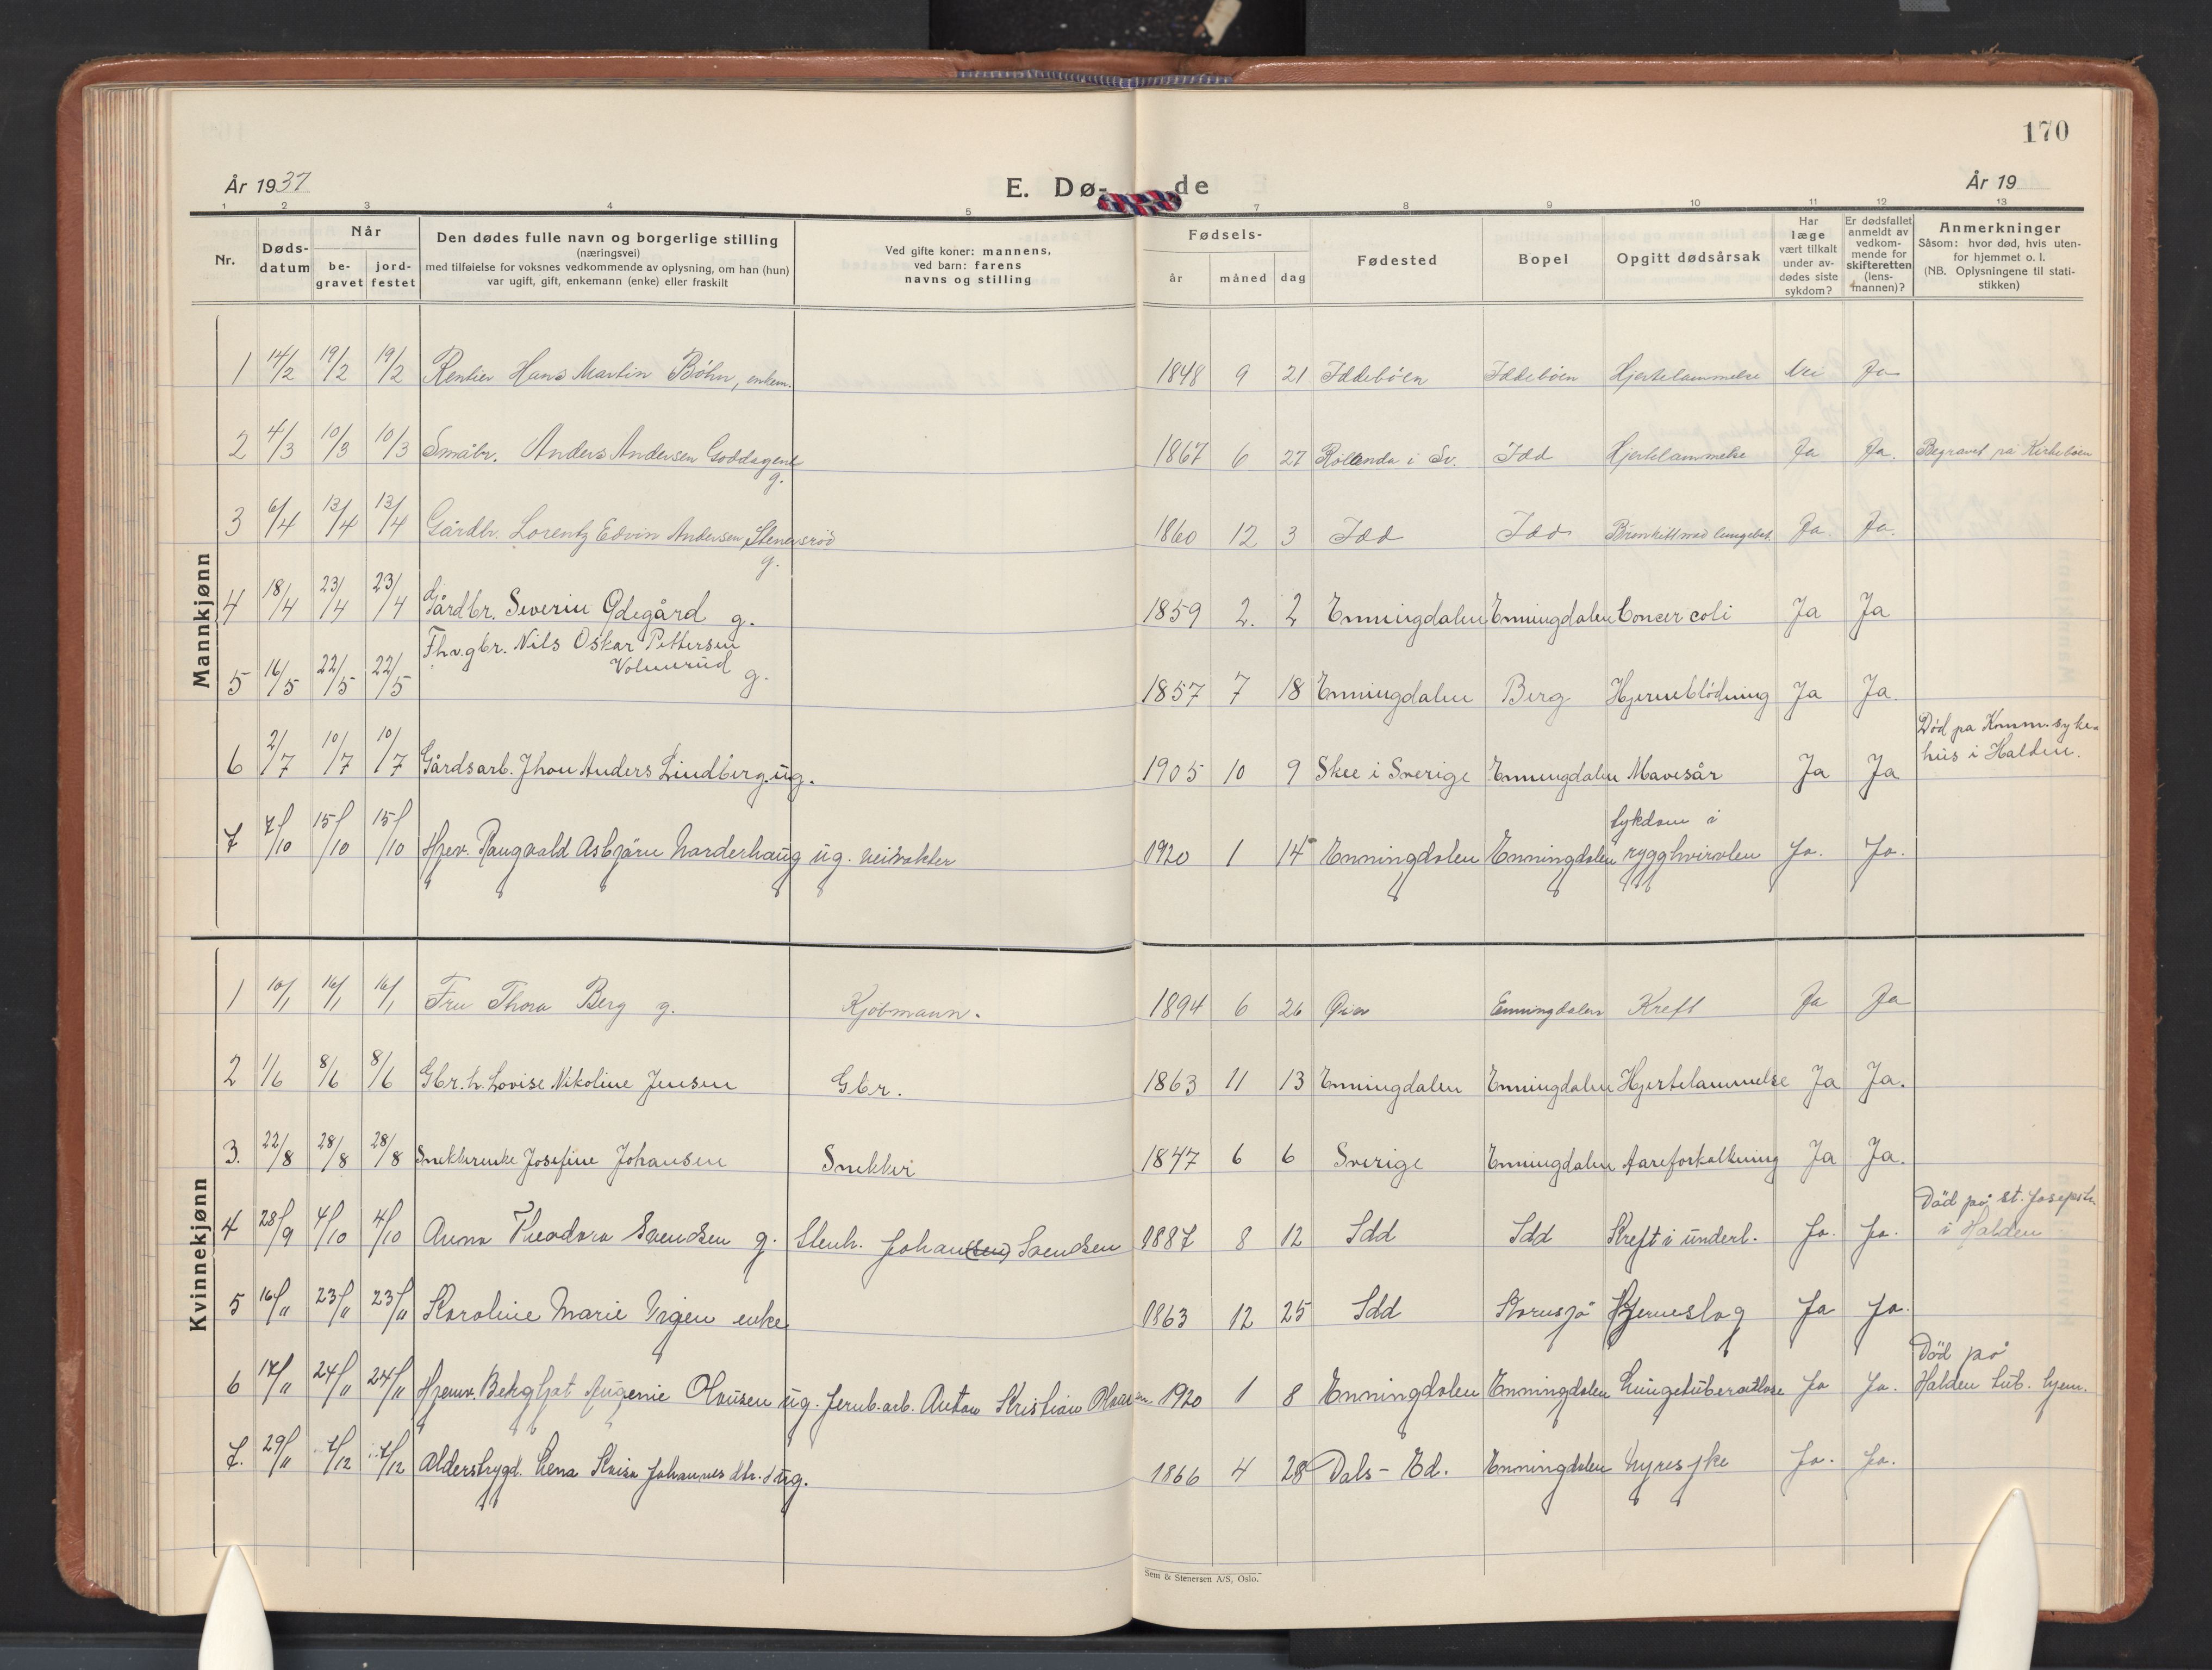 170
År 1937
E. Dø- de
År 19
1 2 3 4 5 7 8 9 10 11 12 13
Nr.
Døds-
datum
Når
be-
gravet
jord-
festet
Den dødes fulle navn og borgerlige stilling
(næringsvei)
med tilføielse for voksnes vedkommende av oplysning, om han (hun)
var ugift, gift, enkemann (enke) eller fraskilt
Ved gifte koner: mannens,
ved barn: farens
navns og stilling
Fødsels-
år måned dag
Fødested
Bopel
Opgitt dødsårsak
Har
læge
vært tilkalt
under av-
dødes siste
sykdom?
Er dødsfallet
anmeldt av
vedkom-
mende for
skifteretten
(lens-
mannen)?
Anmerkninger
Såsom: hvor død, hvis uten-
for hjemmet o. l.
(NB. Oplysningene til stati-
stikken)
Mannkjønn
1 14/2 19/2 19/2 Rentier Hans Martin Böhn, enkem. 1848 9 21 Iddeböen Iddeböen Hjertelammelse Nei Ja
2 4/3 10/3 10/3 Småbr. Anders Andersen Goddagend g. 1867 6 27 i Sv. Idd Hjertelammelse Ja Ja. Begravet på Kirkeböen
3 6/4 13/4 13/4 Gårdbr. Lorentz Edvin Andersen, Stenersröd g. 1860 12 3 Idd Idd Bronkitt med lungebet. Ja. Ja.
4 18/4 23/4 23/4 Gårdbr. Severin Ødegård g. 1859 2. 2 Enningdalen Enningdalen Concer coli Ja Ja
Fhv. gbr. Nils Oskar Pettersen
5 16/5 22/5 22/5 Volmerud g. 1857 7 18 Enningdalen Berg Hjerneblödning Ja Ja.
Död pa Komm. syke-
hus i Halden.
6 2/7 10/7 10/7 Gårdsarb. Jhon Anders Lindberg ug. 1905 10 9 Skee i Sverige Enningdalen Mavesår Ja Ja
Sykdom i
7 7/10 15/10 15/10 Hjev. Raugvald Asbjörn Narderhaug ug. veivokter 1920 1 14 Enningdalen Enningdalen rygghvirvlen Ja. Ja.
Kvinnekjønn
1 10/1 16/1 16/1 Fru Thora Berg g. Kjöbmann. 1894 6 26 Enningdalen Kreft Ja Ja
2 1/6 8/6 8/6 Gbr. h. Lovise Nikoline Jensen Gbr. 1863 11 13 Enningdalen Enningdalen Hjertelammelse Ja Ja.
3. 22/8 28/8 28/8 Snekkerenke Josefine Johansen Snekker 1847 6 6 Sverige Enningdalen Aareforkalkning Ja Ja.
Död på st. Josephs.
4 28/9 4/10 4/10 Anna Theodora Svendsen g. Stenh. Johan(sen) Svendsen 1887 8 12 Idd Idd Kreft i underl. Ja. Ja. i Halden
5 16/11 23/11 23/11 Karoline Marie Vigen enke 1863 12 25 Idd Kornsjö Hjerneslag Ja Ja.
Död på
6 17/11 24/11 24/11 Hjemv. Bergljot Augenie Olausen ug. Jernb.arb. Anton Kristian Olausen 1920 1 8 Enningdalen Enningdalen Lungetuberculose Ja Ja. Halden tub. hjem.
7. 29/11 7/12 7/12 Alderstrygd. Lena Kaisa Johannes dtr. ug. 1866 4 28 Dals-Ed. Enningdalen Nyresyke Ja. Ja.
Sem & Stenersen A/S, Oslo.